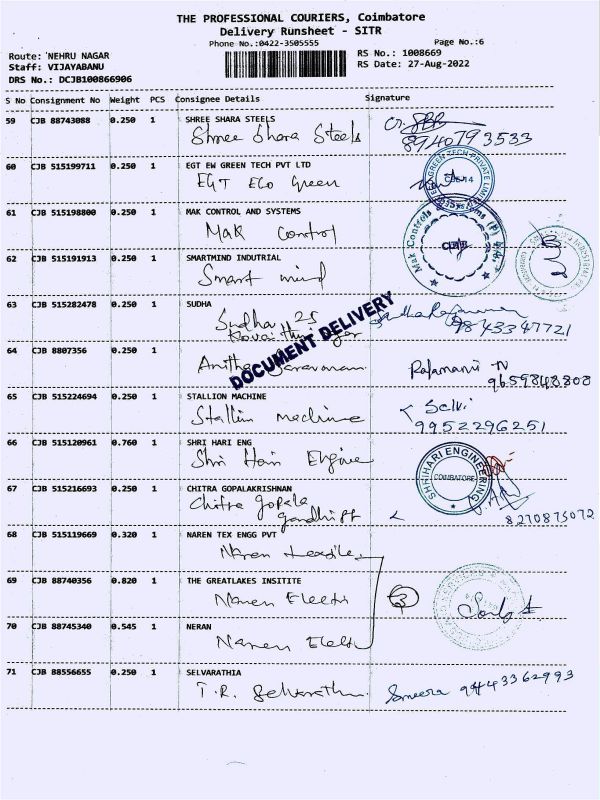 THE PROFESSIONAL COURIERS, Coimbatore
Delivery Runsheet - SITR
Phone No.:0422-3505555
Page No.:6
Route: NEHRU NAGAR
RS No.: 1008669
Staff: VIJAYABANU
RS Date: 27-Aug-2022
DRS No.: DCJB100866906
S No Consignment No Weight PCS Consignee Details Signature
59 CJB 88743088 0.250 1 SHREE SHARA STEELS
Shree Shara Steels 8940793533
60 CJB 515199711 0.250 1 EGT EW GREEN TECH PVT LTD
EGT Eco Green
61 CJB 515198800 0.250 1 MAK CONTROL AND SYSTEMS
Mak Control
62 CJB 515191913 0.250 1 SMARTMIND INDUTRIAL
Smart mind
63 CJB 515282478 0.250 1 SUDHA
Sudha 25
9843347721
DOCUMENT DELIVERY
64 CJB 8807356 0.250 1
Anitha Saravanan
9659848808
65 CJB 515224694 0.250 1 STALLION MACHINE
Stallin machine Selvi
9952296251
66 CJB 515120961 0.760 1 SHRI HARI ENG
Shri Hari Engine
SHRIHARI ENGINEERING
COIMBATORE
67 CJB 515216693 0.250 1 CHITRA GOPALAKRISHNAN
Chitra gopala
8270875072
68 CJB 515119669 0.320 1 NAREN TEX ENGG PVT
Naren textiles
69 CJB 88740356 0.820 1 THE GREATLAKES INSITITE
Naren Electri 3
70 CJB 88745340 0.545 1 NERAN
Naren Electri
71 CJB 88556655 0.250 1 SELVARATHIA
T.R. Selvarathi Sneera 9443362993